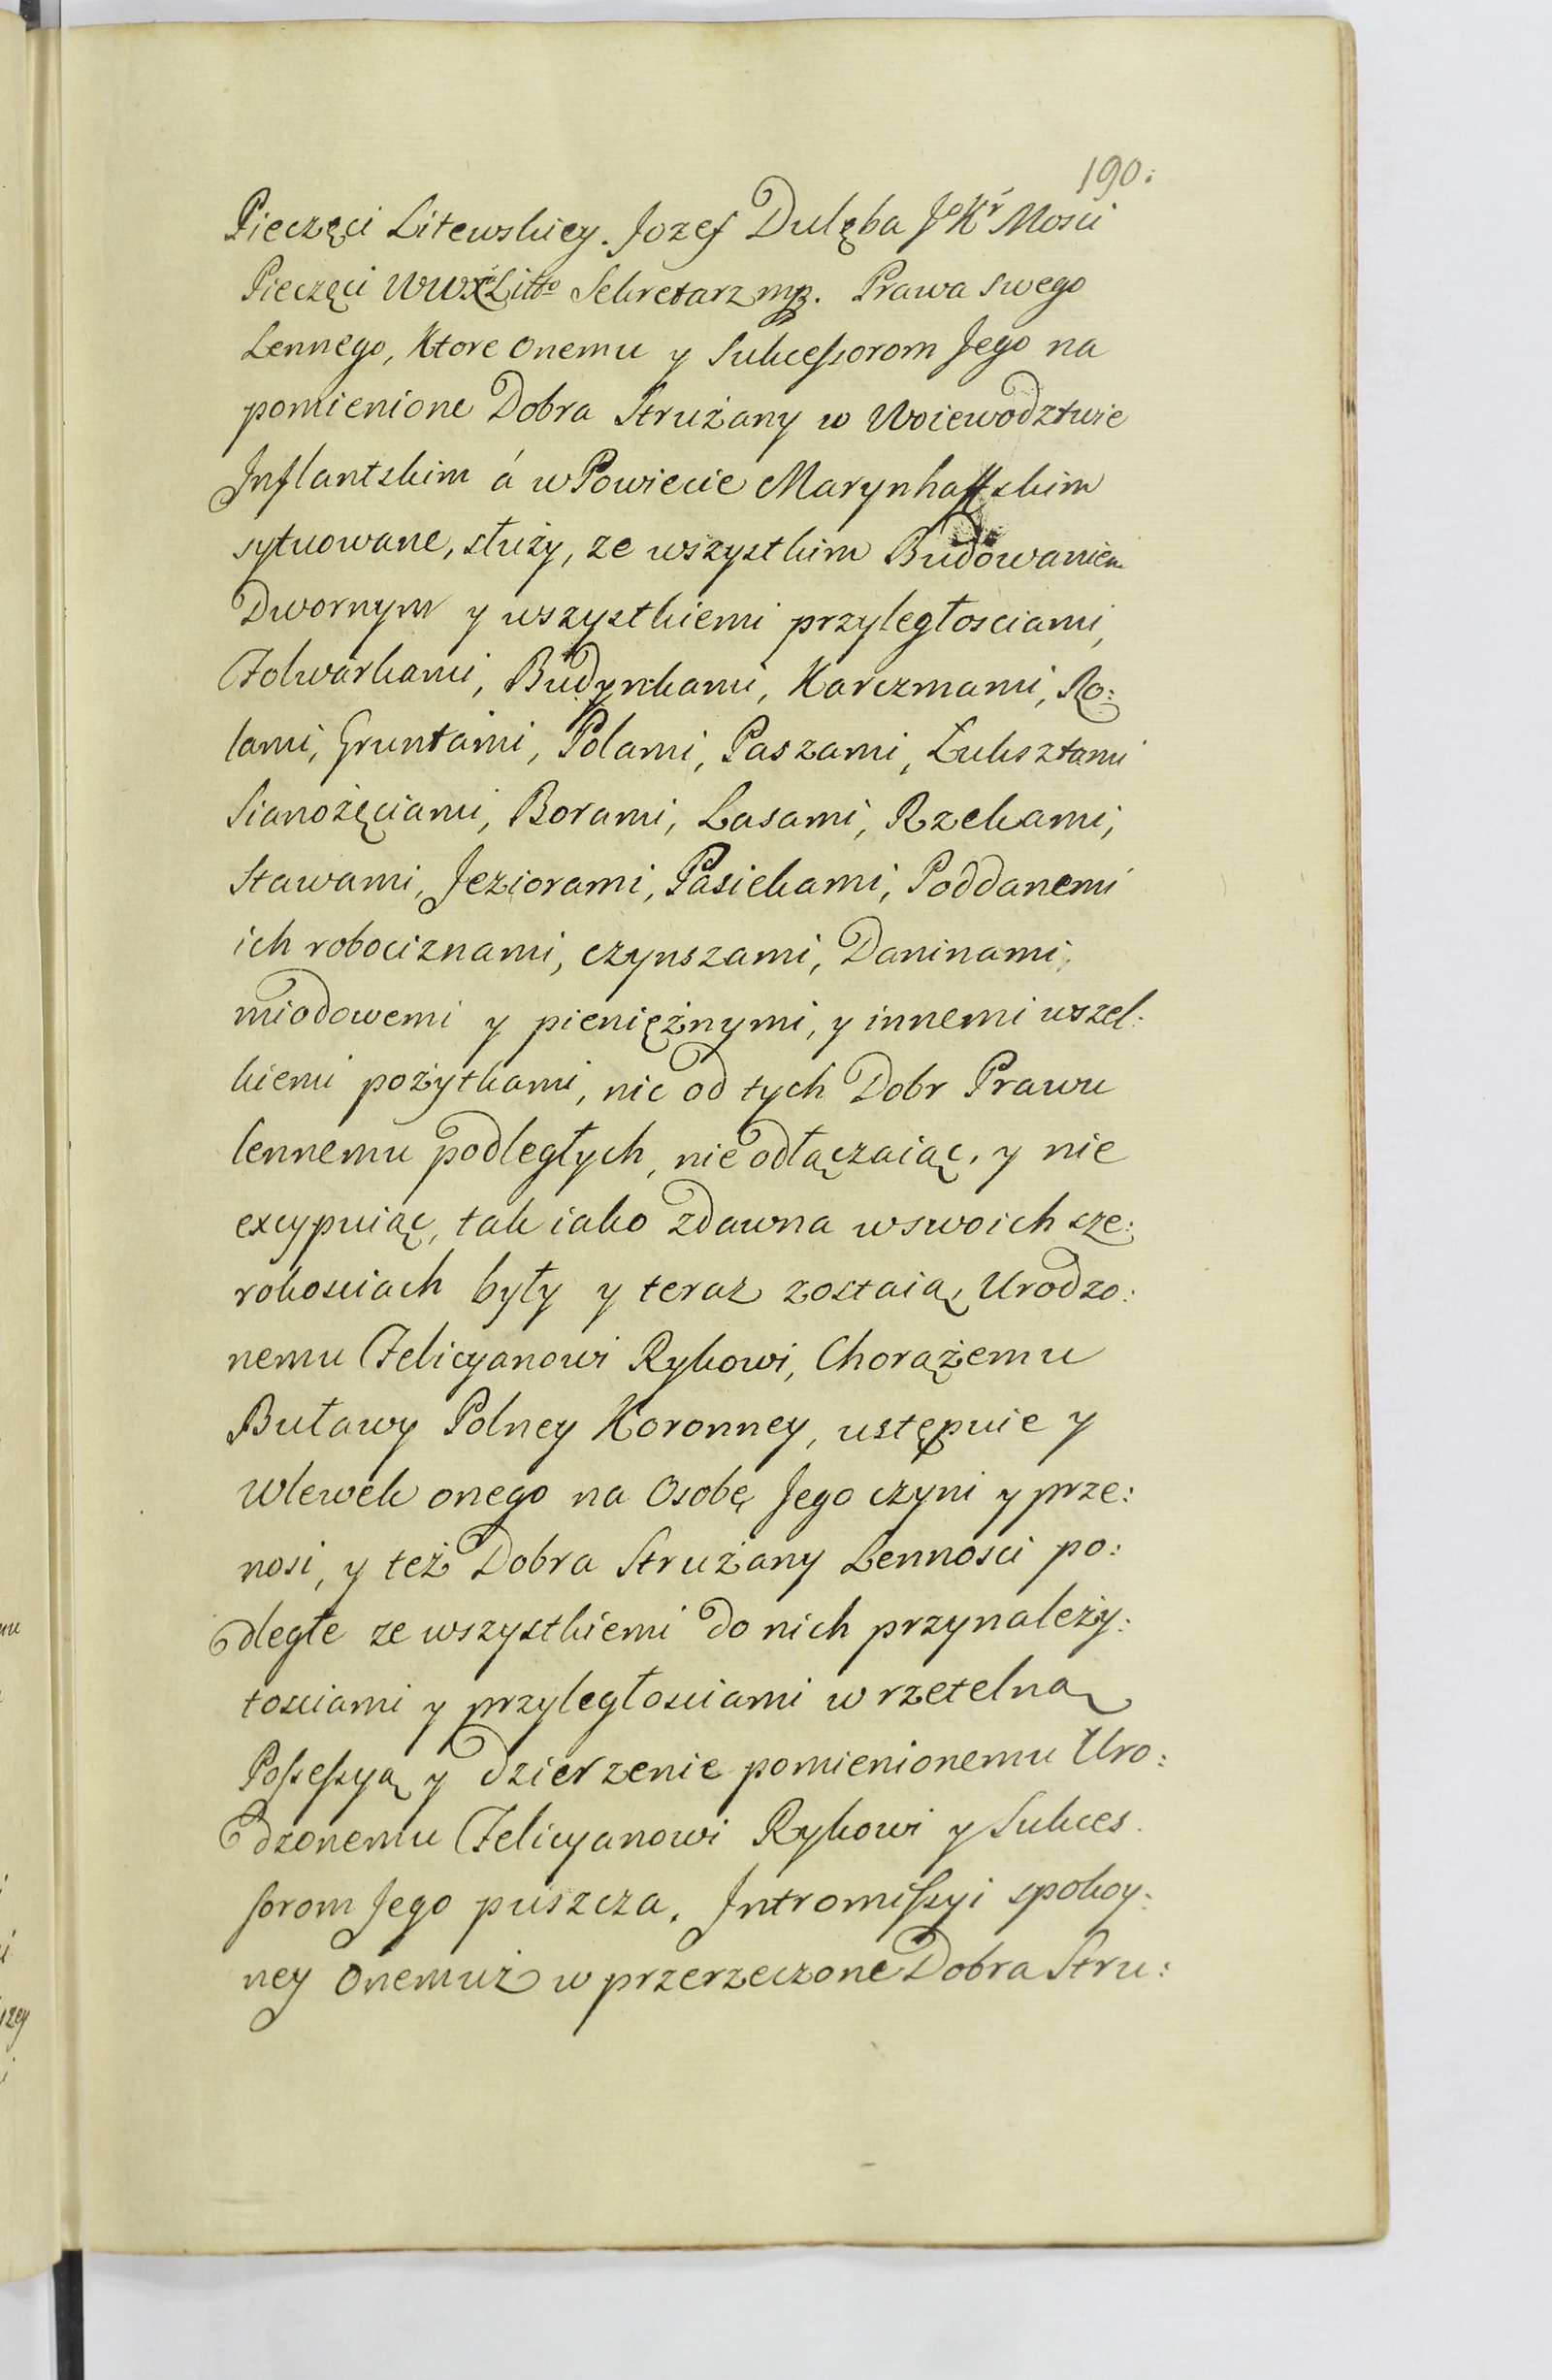 190.
Pieczęci Litewskiey. Jozef Dulęba JoKr Mosci
Pieczęci WWXLitto Sekretarz mp. Prawa swego
Lennego, Ktore onemu y Sukcessorom Jego na
pomienione Dobra Strużany w Woiewodztwie
Inflantskim á w Powiecie Marynhauskim
sytuowane, służy, ze wszystkim Budowaniem
Dwornym y wszystkiemi przyległosciami,
Folwarkami, Budynkami, Karczmami, Ro:
lami, Gruntami, Polami, Paszami, Łuksztami
Sianożęciami, Borami, Lasami, Rzekami,
Stawami, Jeziorami, Pasiekami, Poddanemi
ich robociznami, czynszami, Daninami,
miodowemi y pieniężnymi, y innemi wszel:
kiemi pożytkami, nic od tych Dobr Prawu
lennemu podległych, nie odłączaiąc, y nie
excypuiąc, tak iako zdawna w swoich sze:
rokosciach były y teraz zostaią, Urodzo:
nemu Felicyanowi Rykowi, Chorążemu
Buławy Polney Koronney, ustępuie y
Wlewek onego na Osobę Jego czyni y prze:
nosi, y też Dobra Strużany Lennosci po:
dległe ze wszystkiemi do nich przynależy:
tosciami y przyległosciami w rzetelną
Possessyą y dzierzenie pomienionemu Uro:
dzonemu Felicyanowi Rykowi y Sukces.
sorom Jego puszcza. Intromissyi spokoy:
ney Onemuż w przerzeczone Dobra Stru: